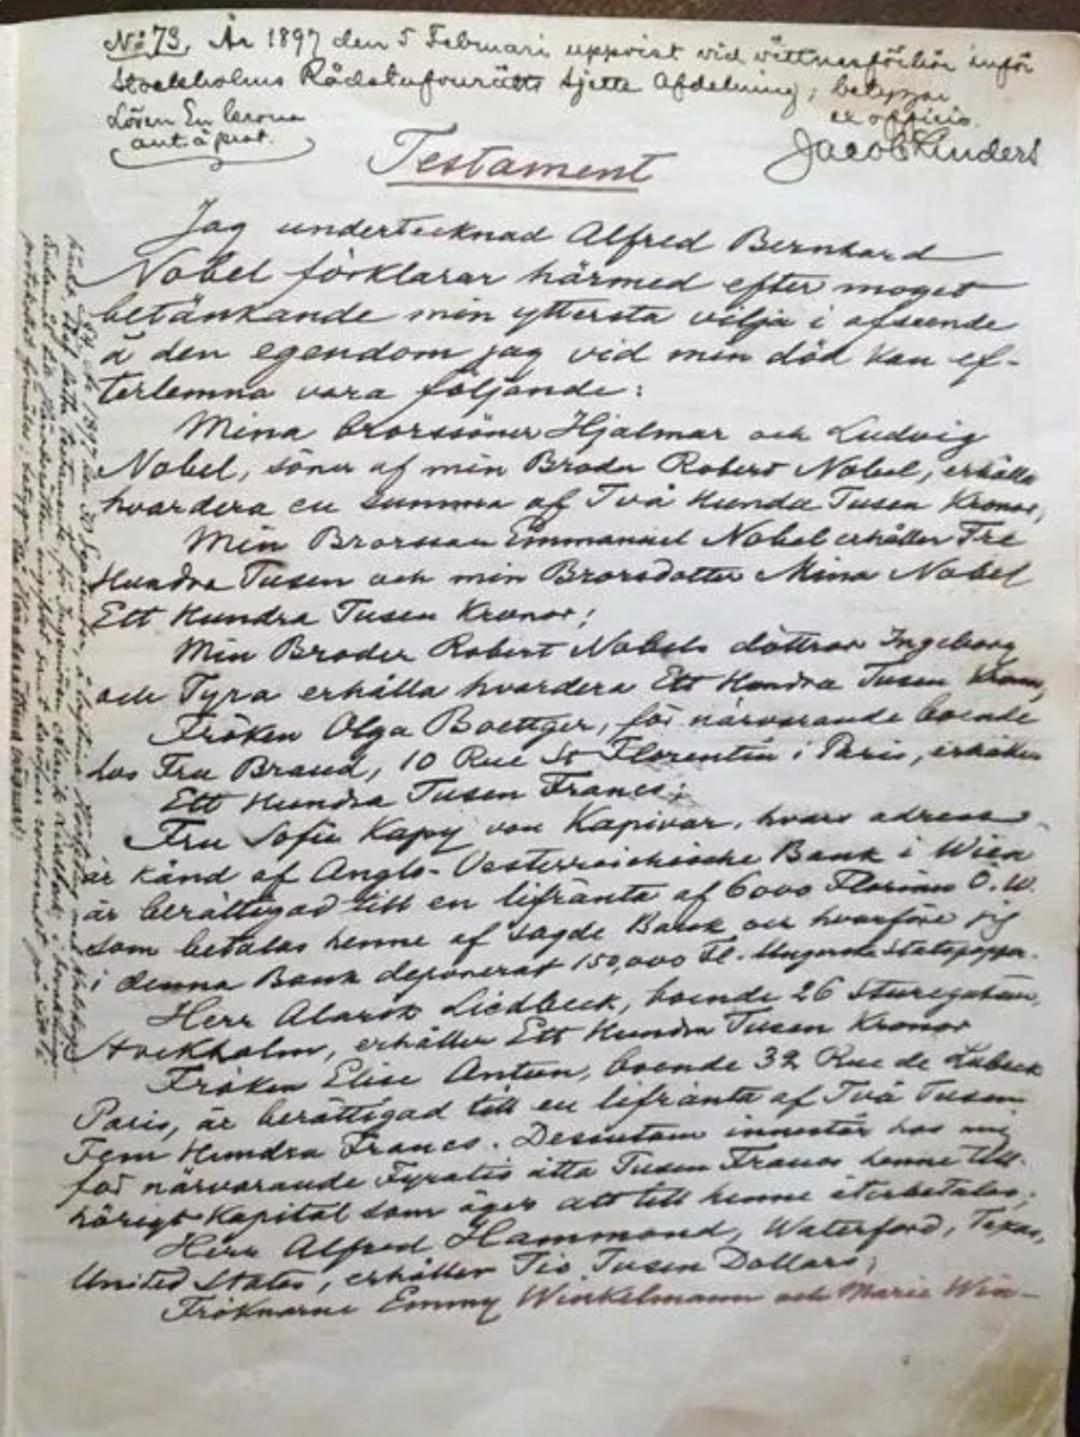 No 73. År 1897 den 5 Februari uppvist vid vittnesförhör inför
Stockholms Rådstufvurätts sjette Afdelning; betygar
Lösen En krona
ex officio.
ant. å prot.
Jacob Kinders
Testament
Jag undertecknad Alfred Bernhard
Nobel förklarar härmed efter moget
betänkande min yttersta vilja i afseende
å den egendom jag vid min död kan ef-
terlemna vara följande:
Mina brorssöner Hjalmar och Ludvig
Nobel, söner af min Broder Robert Nobel, erhålla
hvardera en summa af Två Hundra Tusen Kronor,
Min Brorsson Emmanuel Nobel erhåller Tre
Hundra Tusen och min Brorsdotter Mina Nobel
Ett Hundra Tusen Kronor;
Min Broder Robert Nobels döttrar Ingeborg
och Tyra erhålla hvardera Ett Hundra Tusen Kronor,
Fröken Olga Boettger, för närvarande boende
hos Fru Brand, 10 Rue St Florentin i Paris, erhåller
Ett Hundra Tusen Francs;
Fru Sofie Kapy von Kapivar, hvars adress
är känd af Anglo-Oesterreichische Bank i Wien
är berättigad till en lifränta af 6000 Florins Ö.W.
som betalas henne af sagde Bank och hvarföre jag
i denna Bank deponerat 150,000 Fl. i Ungerska Statspapper.
Herr Alarik Liedbeck, boende 26 Sturegatan,
Stockholm, erhåller Ett Hundra Tusen Kronor
Fröken Elise Antun, boende 32 Rue de Lubeck
Paris, är berättigad till en lifränta af Två Tusen
Fem Hundra Francs. Dessutom innestår hos mig
för närvarande Fyratio åtta Tusen Francs henne till-
hörigt Kapital som äger att till henne återbetalas;
Herr Alfred Hammond, Waterford, Texas,
United States, erhåller Tio Tusen Dollars;
Fröknarne Emmy Winkelmann och Marie Win-